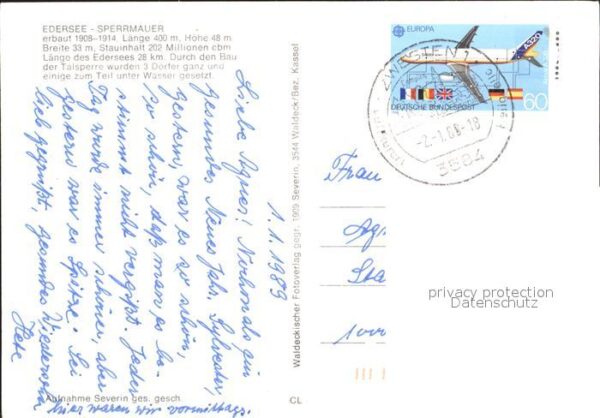 EDERSEE - SPERRMAUER
erbaut 1908-1914. Länge 400 m, Höhe 48 m.
Breite 33 m, Stauinhalt 202 Millionen cbm
Länge des Edersees 28 km. Durch den Bau
der Talsperre wurden 3 Dörfer ganz und
einige zum Teil unter Wasser gesetzt.
1.1.1989
Liebe Agnes! Nochmals ein
gesundes Neues Jahr. Sylvester,
gestern, war es so schön,
so schön, daß man es be-
stimmt nicht vergißt. Jeder
Tag wurde immer schöner, aber
gestern war es Spitze. Sei
lieb gegrüßt, gesundes Wiedersehn
hier waren wir vormittags.
Aufnahme Severin ges. gesch.
CL
Waldeckischer Fotoverlag gegr. 1909 Severin, 3544 Waldeck/Bez. Kassel
EUROPA
A320
DEUTSCHE BUNDESPOST
60
ZWESTEN 1
3584
Frau
Ag
Sta
1000
privacy protection
Datenschutz